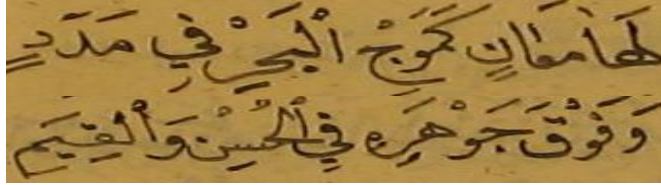 لَهَا مَعَانٍ كَمَوْجِ الْبَحْرِ فِي مَدَدٍ
وَفَوْقَ جَوْهَرِهِ فِي الْحُسْنِ وَالْقِيَمِ